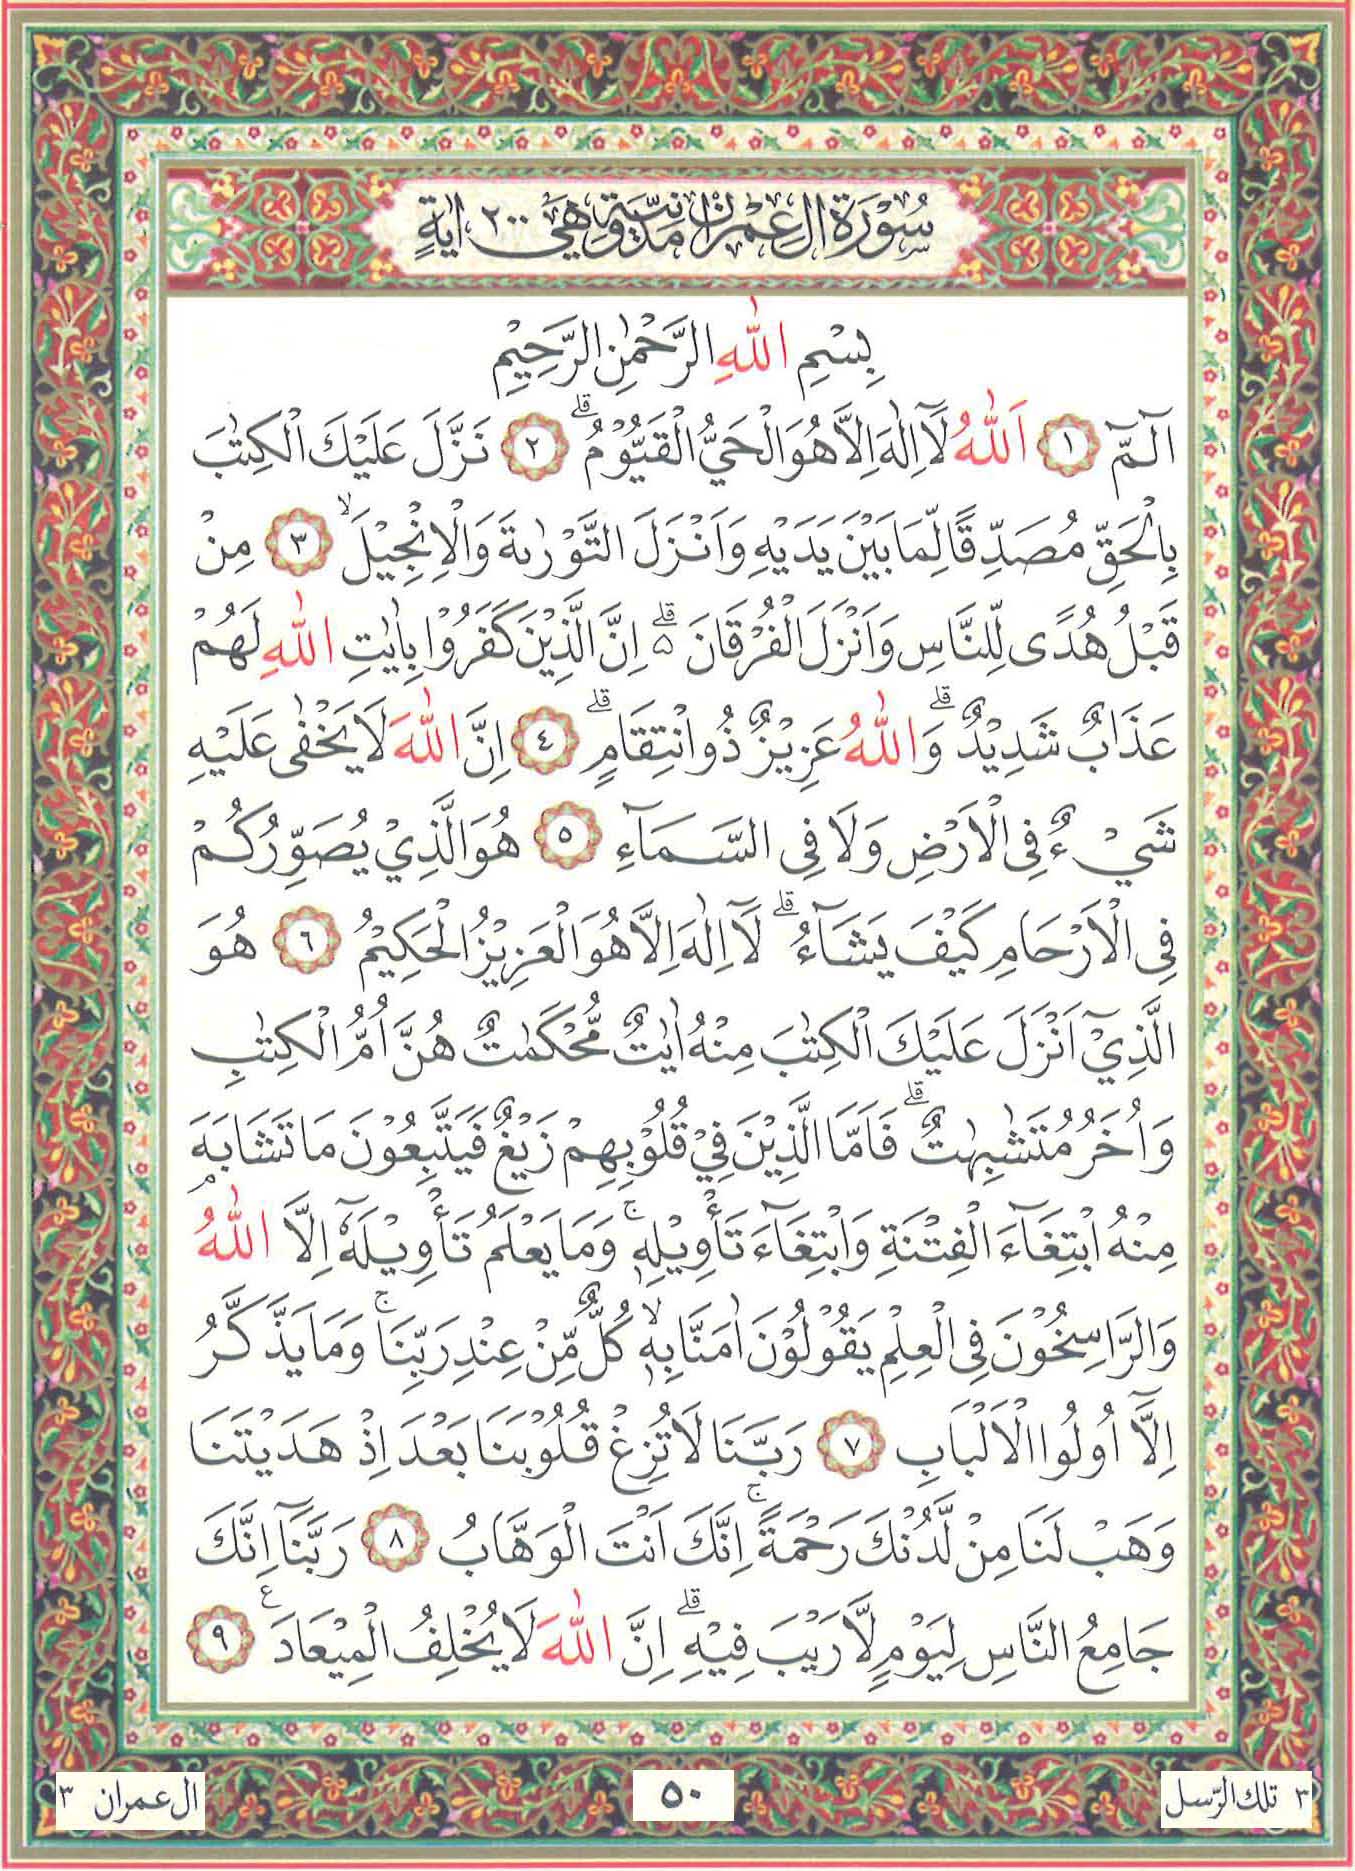 سُوْرَةُ اٰلِ عِمْرٰنَ مَدَنِيَّةٌ وَّهِيَ ٢٠٠ اٰيَةٍ
بِسْمِ اللّٰهِ الرَّحْمٰنِ الرَّحِيْمِ
الۤمّۤ ۝١ اَللّٰهُ لَآ اِلٰهَ اِلَّا هُوَ الْحَيُّ الْقَيُّوْمُۗ ۝٢ نَزَّلَ عَلَيْكَ الْكِتٰبَ
بِالْحَقِّ مُصَدِّقًا لِّمَا بَيْنَ يَدَيْهِ وَاَنْزَلَ التَّوْرٰىةَ وَالْاِنْجِيْلَۙ ۝٣ مِنْ
قَبْلُ هُدًى لِّلنَّاسِ وَاَنْزَلَ الْفُرْقَانَ ەۗ اِنَّ الَّذِيْنَ كَفَرُوْا بِاٰيٰتِ اللّٰهِ لَهُمْ
عَذَابٌ شَدِيْدٌۗ وَاللّٰهُ عَزِيْزٌ ذُو انْتِقَامٍۗ ۝٤ اِنَّ اللّٰهَ لَا يَخْفٰى عَلَيْهِ
شَيْءٌ فِى الْاَرْضِ وَلَا فِى السَّمَاۤءِ ۝٥ هُوَ الَّذِيْ يُصَوِّرُكُمْ
فِى الْاَرْحَامِ كَيْفَ يَشَاۤءُۗ لَآ اِلٰهَ اِلَّا هُوَ الْعَزِيْزُ الْحَكِيْمُ ۝٦ هُوَ
الَّذِيْٓ اَنْزَلَ عَلَيْكَ الْكِتٰبَ مِنْهُ اٰيٰتٌ مُّحْكَمٰتٌ هُنَّ اُمُّ الْكِتٰبِ
وَاُخَرُ مُتَشٰبِهٰتٌۗ فَاَمَّا الَّذِيْنَ فِيْ قُلُوْبِهِمْ زَيْغٌ فَيَتَّبِعُوْنَ مَا تَشَابَهَ
مِنْهُ ابْتِغَاۤءَ الْفِتْنَةِ وَابْتِغَاۤءَ تَأْوِيْلِهٖۚ وَمَا يَعْلَمُ تَأْوِيْلَهٗٓ اِلَّا اللّٰهُۘ
وَالرَّاسِخُوْنَ فِى الْعِلْمِ يَقُوْلُوْنَ اٰمَنَّا بِهٖۙ كُلٌّ مِّنْ عِنْدِ رَبِّنَاۚ وَمَا يَذَّكَّرُ
اِلَّآ اُولُوا الْاَلْبَابِ ۝٧ رَبَّنَا لَا تُزِغْ قُلُوْبَنَا بَعْدَ اِذْ هَدَيْتَنَا
وَهَبْ لَنَا مِنْ لَّدُنْكَ رَحْمَةًۚ اِنَّكَ اَنْتَ الْوَهَّابُ ۝٨ رَبَّنَآ اِنَّكَ
جَامِعُ النَّاسِ لِيَوْمٍ لَّا رَيْبَ فِيْهِۗ اِنَّ اللّٰهَ لَا يُخْلِفُ الْمِيْعَادَ ࣖ ۝٩
٣ تلك الرّسل
٥٠
اٰل عمران ٣